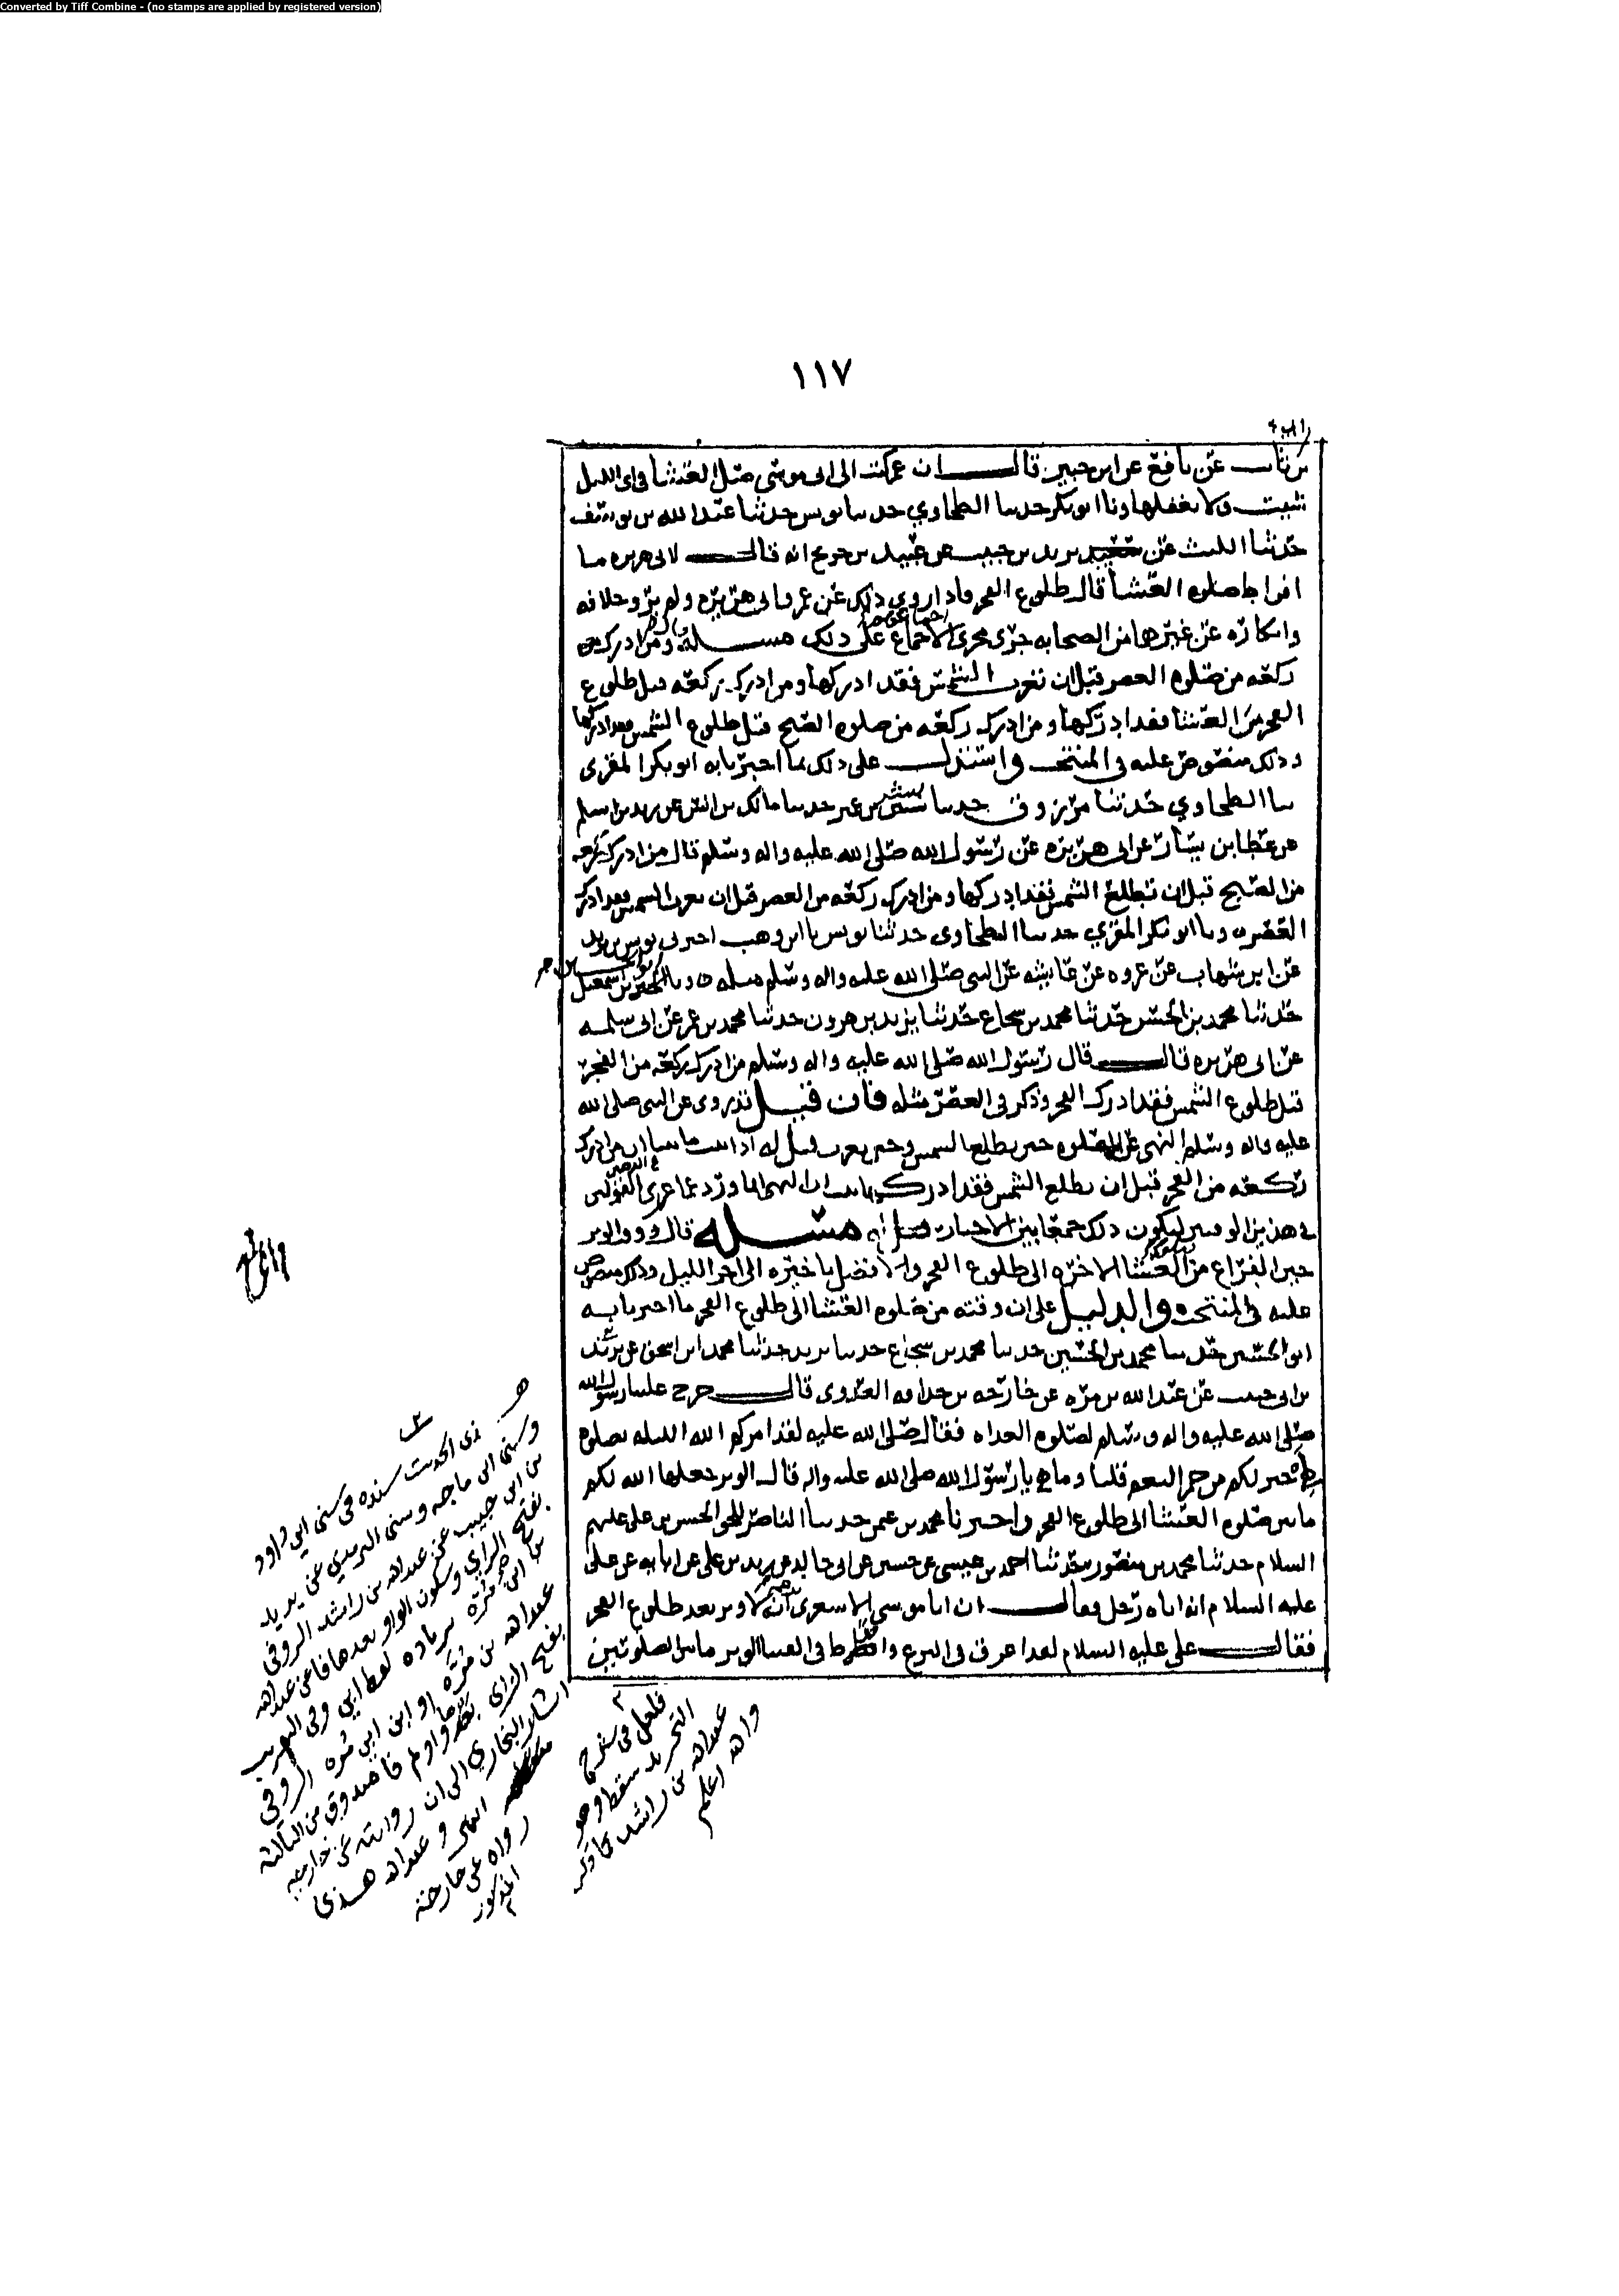 Converted by Tiff Combine - (no stamps are applied by registered version)
١١٧
بن ثابت عن نافع عن ابن جبير قال ان عمر كتب الى ابى موسى صل العشا فى اى الليل
شيت ولا تغفلها ونا ابو بكر حدثنا الطحاوي حدثنا يونس حدثنا عبد الله بن يوسف
حدثنا الليث عن يزيد بن حبيب عن عبيد بن جريج انه قال لابى هريره ما
افراط صلوه العشا قال طلوع الفجر فاذا روى ذلك عن عمر وابى هريره ولم يرو خلافه
وانكاره عن غيرها من الصحابه جرى مجرى الاجماع على ذلك مسله ومن ادرك
ركعه من صلوه العصر قبل ان تغرب الشمس فقد ادركها ومن ادرك ركعه قبل طلوع
الفجر من العشا فقد ادركها ومن ادرك ركعه من صلوه الصبح قبل طلوع الشمس فقد ادركها
وذلك منصوص عليه فى المنتخب واستدل على ذلك بما اخبرنا به ابو بكر المقرى
نا الطحاوي حدثنا مرزوق حدثنا بشر بن عمر حدثنا مالك بن انس عن زيد بن اسلم
عن عطا بن يسار عن ابى هريره عن رسول الله صلى الله عليه واله وسلم قال من ادرك ركعه
من الصبح قبل ان تطلع الشمس فقد ادركها ومن ادرك ركعه من العصر قبل ان تغرب الشمس فقد ادرك
العصر ونا ابو بكر المقري حدثنا الطحاوى حدثنا يونس نا ابن وهب اخبرنى يونس بن يزيد
عن ابن شهاب عن عروه عن عايشه عن النبى صلى الله عليه واله وسلم مثله ونا ابو الحسين بن اسمعيل
حدثنا محمد بن الحسين حدثنا محمد بن شجاع حدثنا يزيد بن هرون حدثنا محمد بن عمر عن ابى سلمه
عن ابى هريره قال قال رسول الله صلى الله عليه واله وسلم من ادرك ركعه من الفجر
قبل طلوع الشمس فقد ادرك الفجر وذكر فى العصر مثله فان قيل قد روى عن النبى صلى الله
عليه واله وسلم النهى عن الصلوه حين تطلع الشمس وحين تغرب قيل له اذا ثبت ان من ادرك
ركعه من الفجر قبل ان تطلع الشمس فقد ادرك ان النهى انما ورد عما عدى الفرض
فى هذين الوقتين ليكون ذلك جمعا بين الاخبار مسله قال ووقت الوتر
حين الفراغ من العشا الاخره الى طلوع الفجر والافضل تاخيره الى اخر الليل وذلك منصوص
عليه فى المنتخب والدليل على ان وقته من صلوه العشا الى طلوع الفجر ما اخبرنا به
ابو الحسين حدثنا محمد بن الحسين حدثنا محمد بن شجاع حدثنا يزيد حدثنا محمد ابن اسحق عن يزيد
بن ابى حبيب عن عبد الله بن مره عن خارجه بن حذافه العدوى قال خرج علينا رسول الله
صلى الله عليه واله وسلم لصلوه الغداه فقال صلى الله عليه لقد امركم الله الليله بصلوه
خير لكم من حمر النعم قلنا وما هى يا رسول الله صلى الله عليه واله قال الوتر جعلها الله لكم
ما بين صلوه العشا الى طلوع الفجر واخبرنا محمد بن عمر حدثنا الناصر للحق الحسن بن على عليهم
السلام حدثنا محمد بن منصور حدثنا احمد بن عيسى عن حسين عن ابى خالد عن زيد بن على عن ابايه عن على
عليه السلام انه اتاه رجل فقال ان ابا موسى الاشعرى يزعم انه لا وتر بعد طلوع الفجر
فقال على عليه السلام لقد اغرق فى النزع وافرط فى الفتيا الوتر ما بين الصلوتين
ذى الحديث سنده فى سنن ابي داود
وسنن ابن ماجه وسنن الترمذي عن يزيد
بن ابى حبيب عن عبدالله بن راشد الزوفى
بفتح الزاي وسكون الواو بعدها فا عن عبدالله
بن ابى مره بزياده لفظ ابي وفى التقريب
عبدالله بن مره او ابن ابي مره الزوفي
بفتح الزاى بعدها واو ثم فا صدوق من الثالثه
اشار البخاري الى ان روايته عن خارجه
انتهى وعبدالله هذى
رواه عن خارجة
المذكور
فلعل فى شرح
التجريد سقط وهو
عبدالله بن راشد كما ذكر
والله اعلم